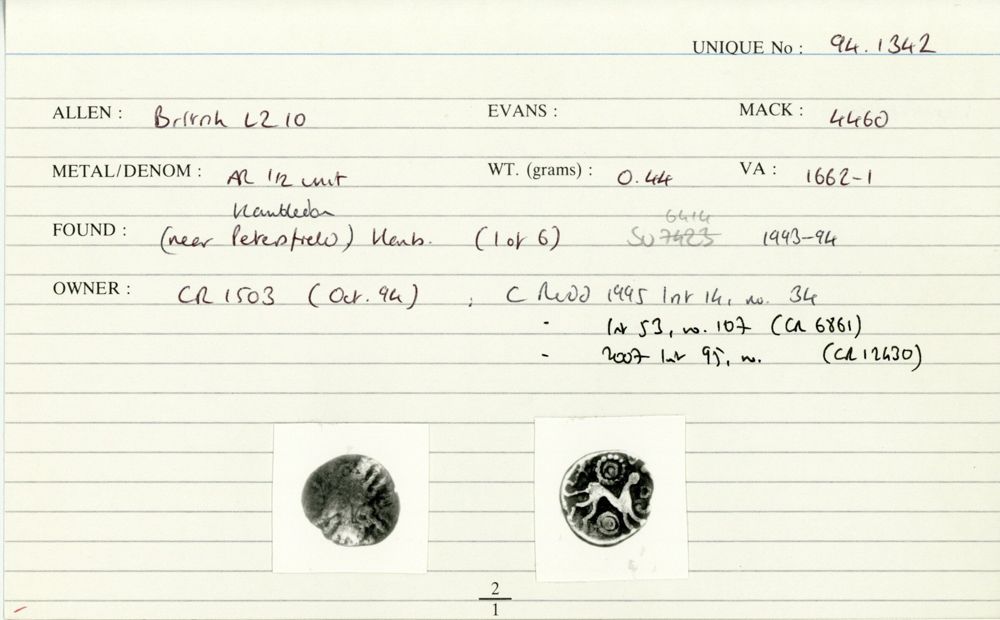 UNIQUE No : 94.1342
ALLEN : British LZ 10 EVANS : MACK : 446o
METAL/DENOM : AR 1/2 unit WT. (grams) : 0.44 VA : 1662-1
Hambledon 6414
FOUND : (near Petersfield) Hants. (1 of 6) SU 7423 1993-94
OWNER : CR 1503 (Oct. 94) ; C Rudd 1995 list 14, no. 34
- list 53, no. 107 (CR 6861)
- 2007 list 95, no. (CR 12430)
2
1